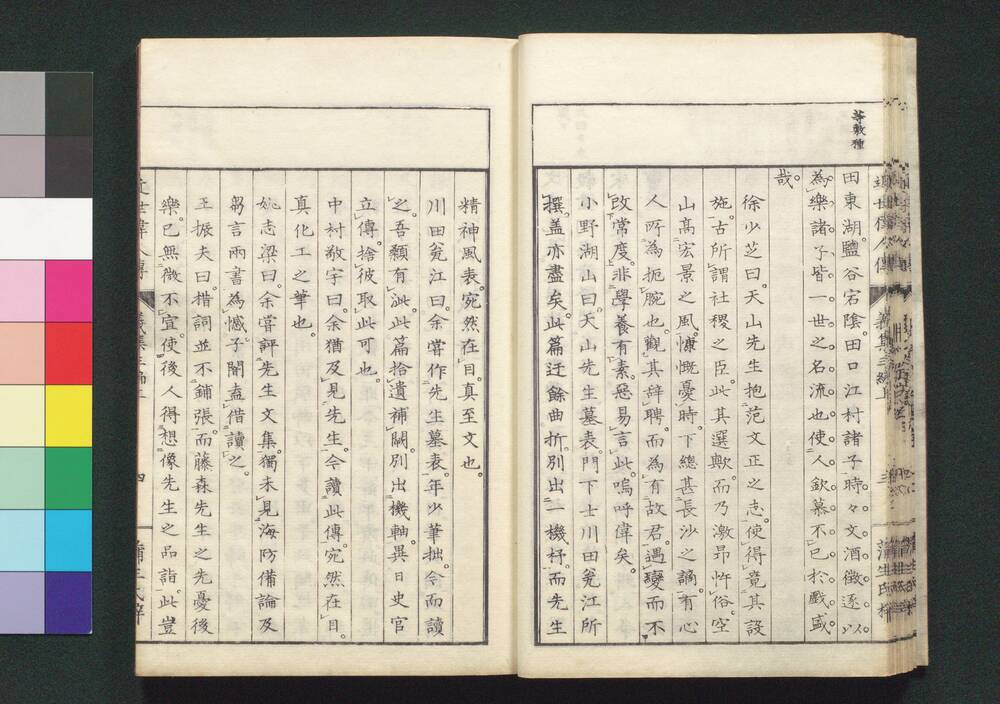 等數種
田東湖。鹽谷宕陰。田口江村諸子時々文酒徵逐以
為樂諸子皆一世之名流也使人欽慕不已於戲盛
哉。
徐少芝曰。天山先生抱范文正之志。使得竟其設
施。古所謂社稷之臣。此其選歟。而乃激昂忤俗。空
山高宏景之風。慷慨憂時。下總甚長沙之謫。有心
人所為扼腕也。觀其辭聘。而為有故君。遇變而不
改常度。非學養有素惡易言此。嗚呼偉矣。
小野湖山曰。天山先生墓表。門下士川田甕江所
撰。蓋亦盡矣。此篇迂餘曲折。別出一機杼。而先生
精神風表。宛然在目。真至文也。
川田甕江曰。余嘗作先生墓表。年少筆拙。今而讀
之。吾顙有泚。此篇拾遺補闕。別出機軸。異日史官
立傳。捨彼取此可也。
中村敬宇曰。余猶及見先生。今讀此傳。宛然在目。
真化工之筆也。
姚志梁曰。余嘗評先生文集。獨未見海防備論及
芻言兩書為憾。子闇盍借讀之。
王振夫曰。措詞並不鋪張。而藤森先生之先憂後
樂。已無微不宣。使後人得想像先生之品詣。此豈